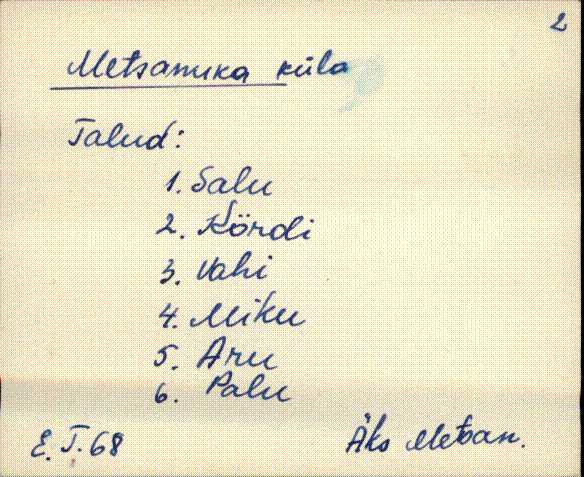 2
Metsanuka küla
Talud:
1. Salu
2. Kõrdi
3. Vahi
4. Miku
5. Aru
6. Palu
E.T.68 Äks Metsan.